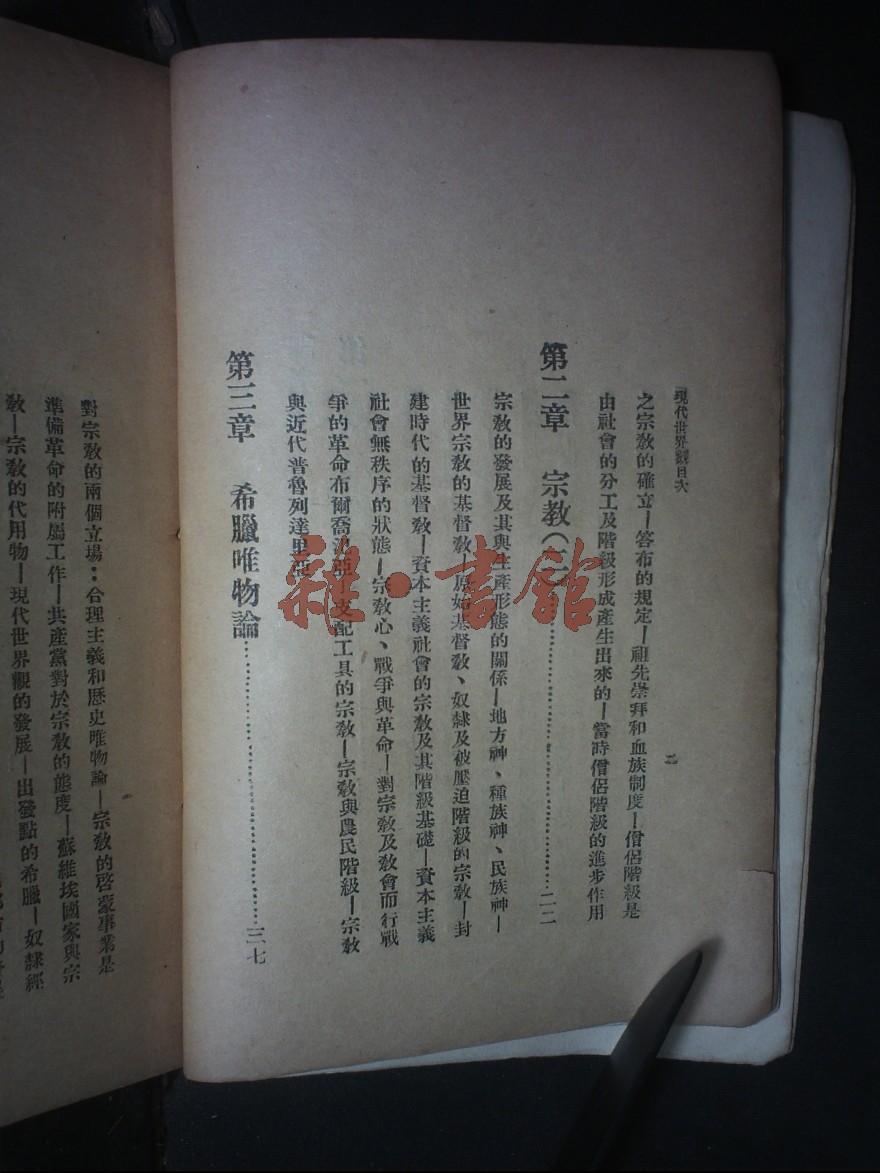 現代世界觀目次
二
之宗敎的確立—答布的規定—祖先崇拜和血族制度—僧侶階級是
由社會的分工及階級形成產生出來的—當時僧侶階級的進步作用
第二章 宗敎(二)……二二
宗敎的發展及其與生產形態的關係—地方神、種族神、民族神—
世界宗敎的基督敎—原始基督敎、奴隸及被壓迫階級的宗敎—封
建時代的基督敎—資本主義社會的宗敎及其階級基礎—資本主義
社會無秩序的狀態—宗敎心、戰爭與革命—對宗敎及敎會而行戰
爭的革命布爾喬 支配工具的宗敎—宗敎與農民階級—宗敎
與近代普魯列達里亞
第三章 希臘唯物論……三七
對宗敎的兩個立場：合理主義和歷史唯物論—宗敎的啓蒙事業是
準備革命的附屬工作—共產黨對於宗敎的態度—蘇維埃國家與宗
敎—宗敎的代用物—現代世界觀的發展—出發點的希臘—奴隸經
雜·書館